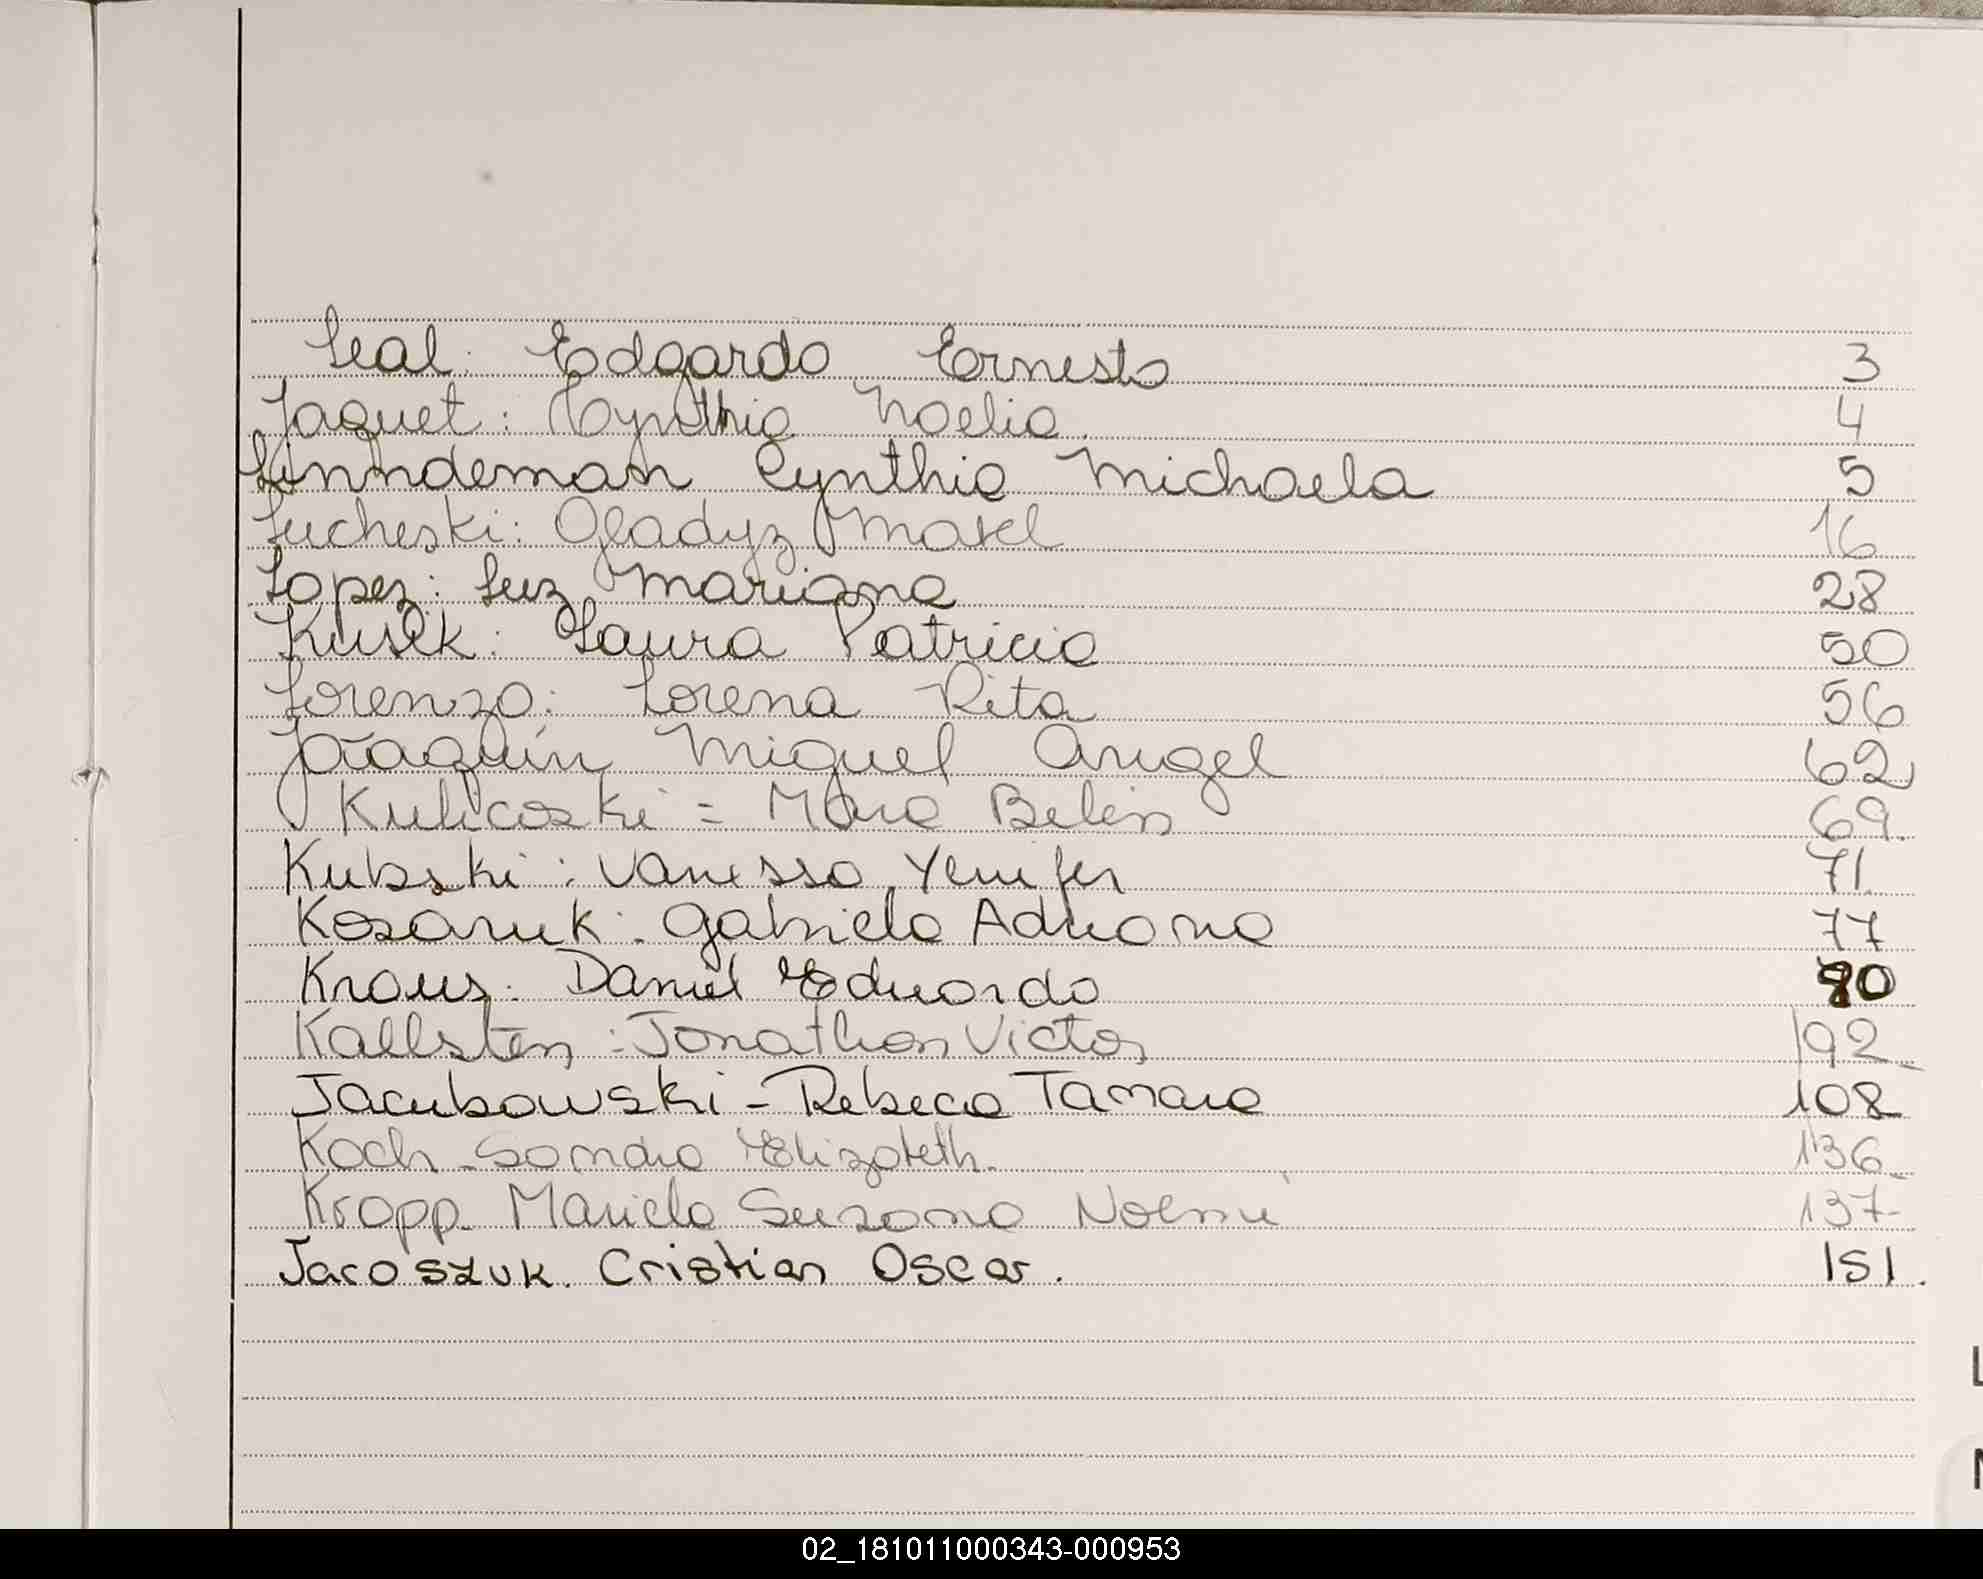 Leal: Edgardo Ernesto 3
Jaquet: Cynthia Noelia 4
Linndeman Cynthia Michaela 5
Lucheski: Gladyz Marel 16
Lopez: Luz Mariana 28
Kusik: Laura Patricia 50
Lorenzo: Lorena Rita 56
Joaquín Miguel Angel 62
Kulicoski = Mara Belén 69.
Kubski: Vanessa Yenifer 71
Kozaruk: Gabriela Adriana 77
Kraus: Daniel Eduardo 90
Kallsten: Jonathan Victor 92
Jacubowski - Rebeca Tamara 108
Koch - Sandra Elizabeth. 136
Kropp - Mariela Susana Noemí 137-
Jaroszuk. Cristian Oscar. 151.
L
02_181011000343-000953